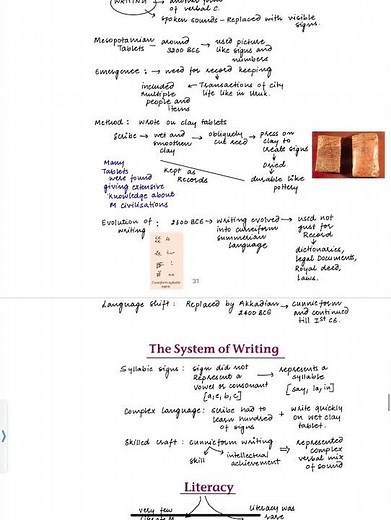 WRITING → another form
of verbal c.
spoken sounds - Replaced with visible
signs.
Mesopotamian
Tablets – around
3200 BCE → used picture
like signs and
numbers
Emergence : → need for record keeping
included ← Transactions of city
multiple life like in Uruk.
people and
items
Method : Wrote on clay tablets
Scribe → wet and
smoothen
clay → obliquely
cut reed → press on
clay to
create signs
Dried
durable like
pottery
Kept as
Records
Many
Tablets
were found
giving extensive
knowledge about
M civilisations
Evolution of
writing : 2600 BCE → writing evolved
into cuneiform
summerian
language → used not
just for
Record
dictionaries,
legal Documents,
Royal deed,
Laws.
31
Language shift : Replaced by Akkadian
2400 BCE → cunniform
and continued
till Ist CE.
The System of Writing
Syllabic signs : sign did not
Represent a
vowel or consonant
[a, e, b, c] → represents a
syllable
[say, la, in]
Complex language : scribe had to
learn hundred
of signs + write quickly
on wet clay
tablet.
Skilled craft : cunniform writing
skill intellectual
achievement ⇒ represented
complex
verbal mix
of sound
Literacy
very few
literacy was